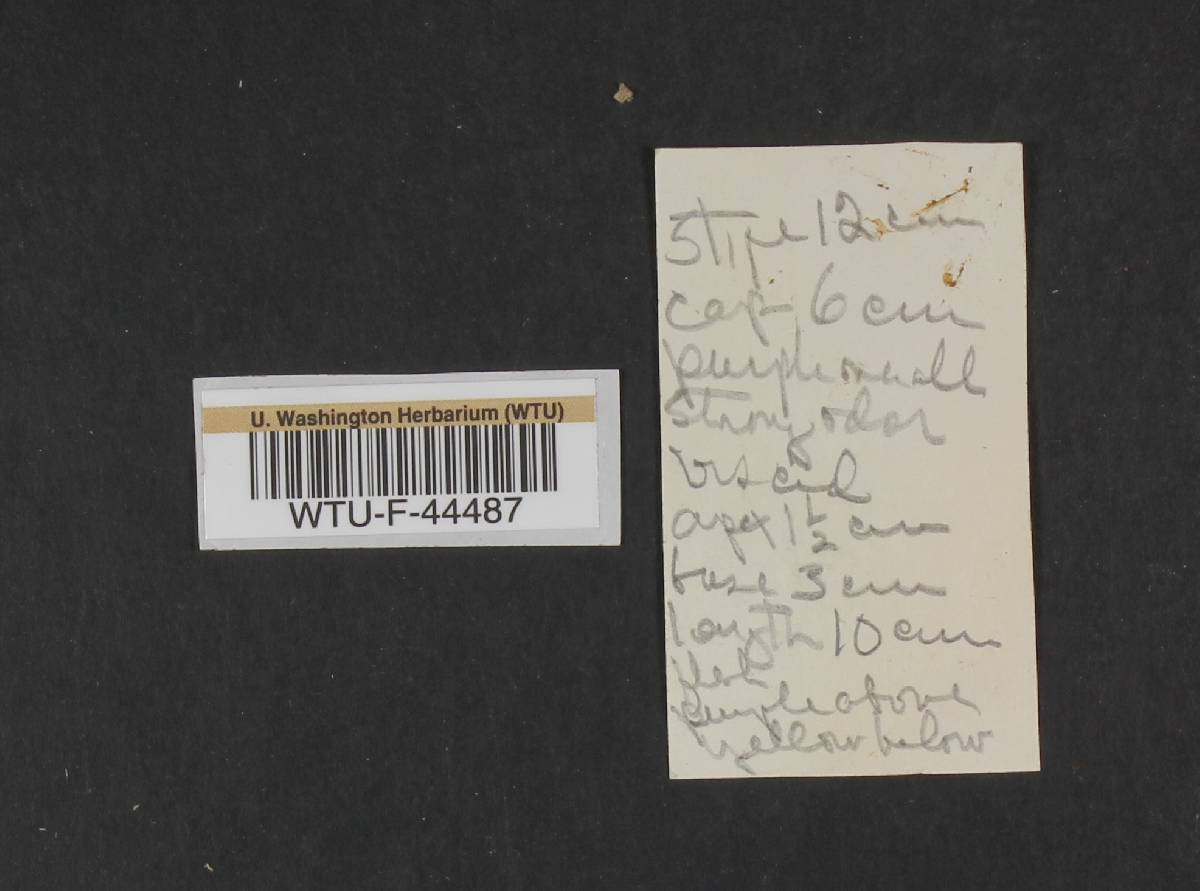 U. Washington Herbarium (WTU)
WTU-F-44487
Stipe 12 cm
cap 6 cm
purple
Strong odor
viscid
apex 1 1/2 cm
base 3 cm
length 10 cm
purple above
yellow below